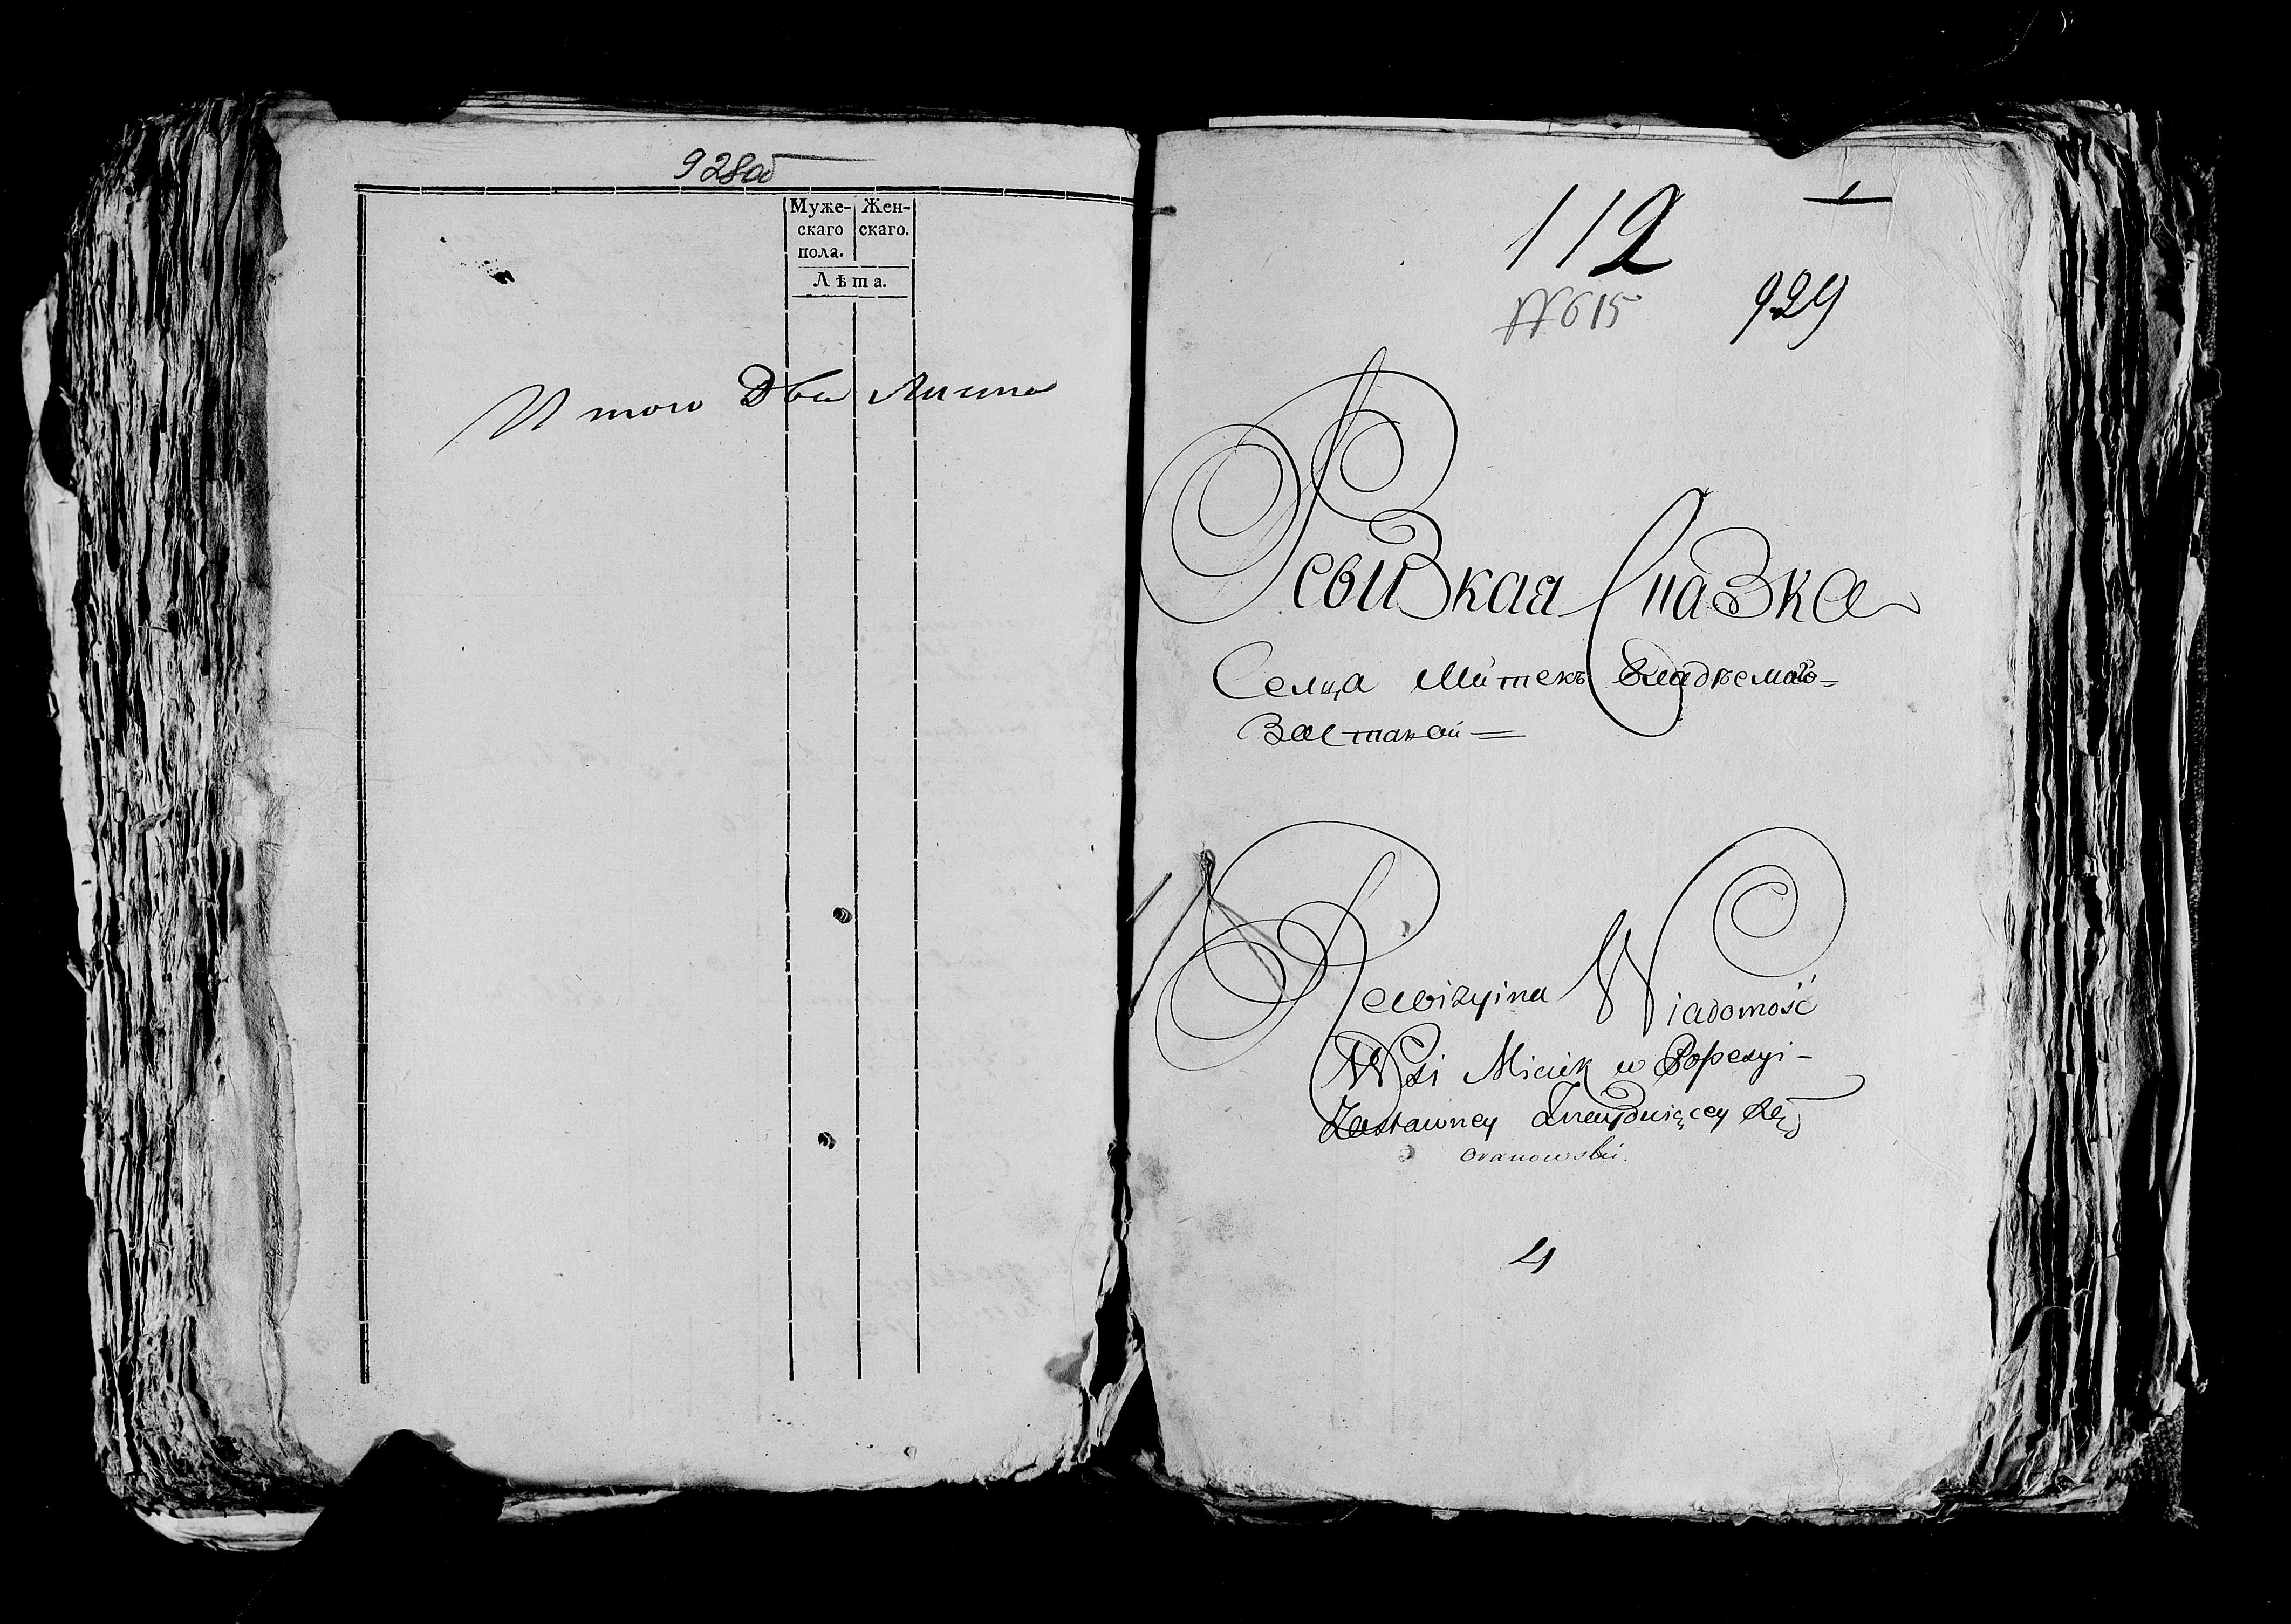 928об
Муже- Жен-
скаго скаго.
пола.
Лѣта.
Итого Два листа
1
112
№615 929
Ревизкая Сказка
Селца Митекъ владѣемаго=
Заставой=
Rewizyina Wiadomość
Wsi Miciek w Posesyi-
Zastawney Znayduiącey Się
Oranowski.
4